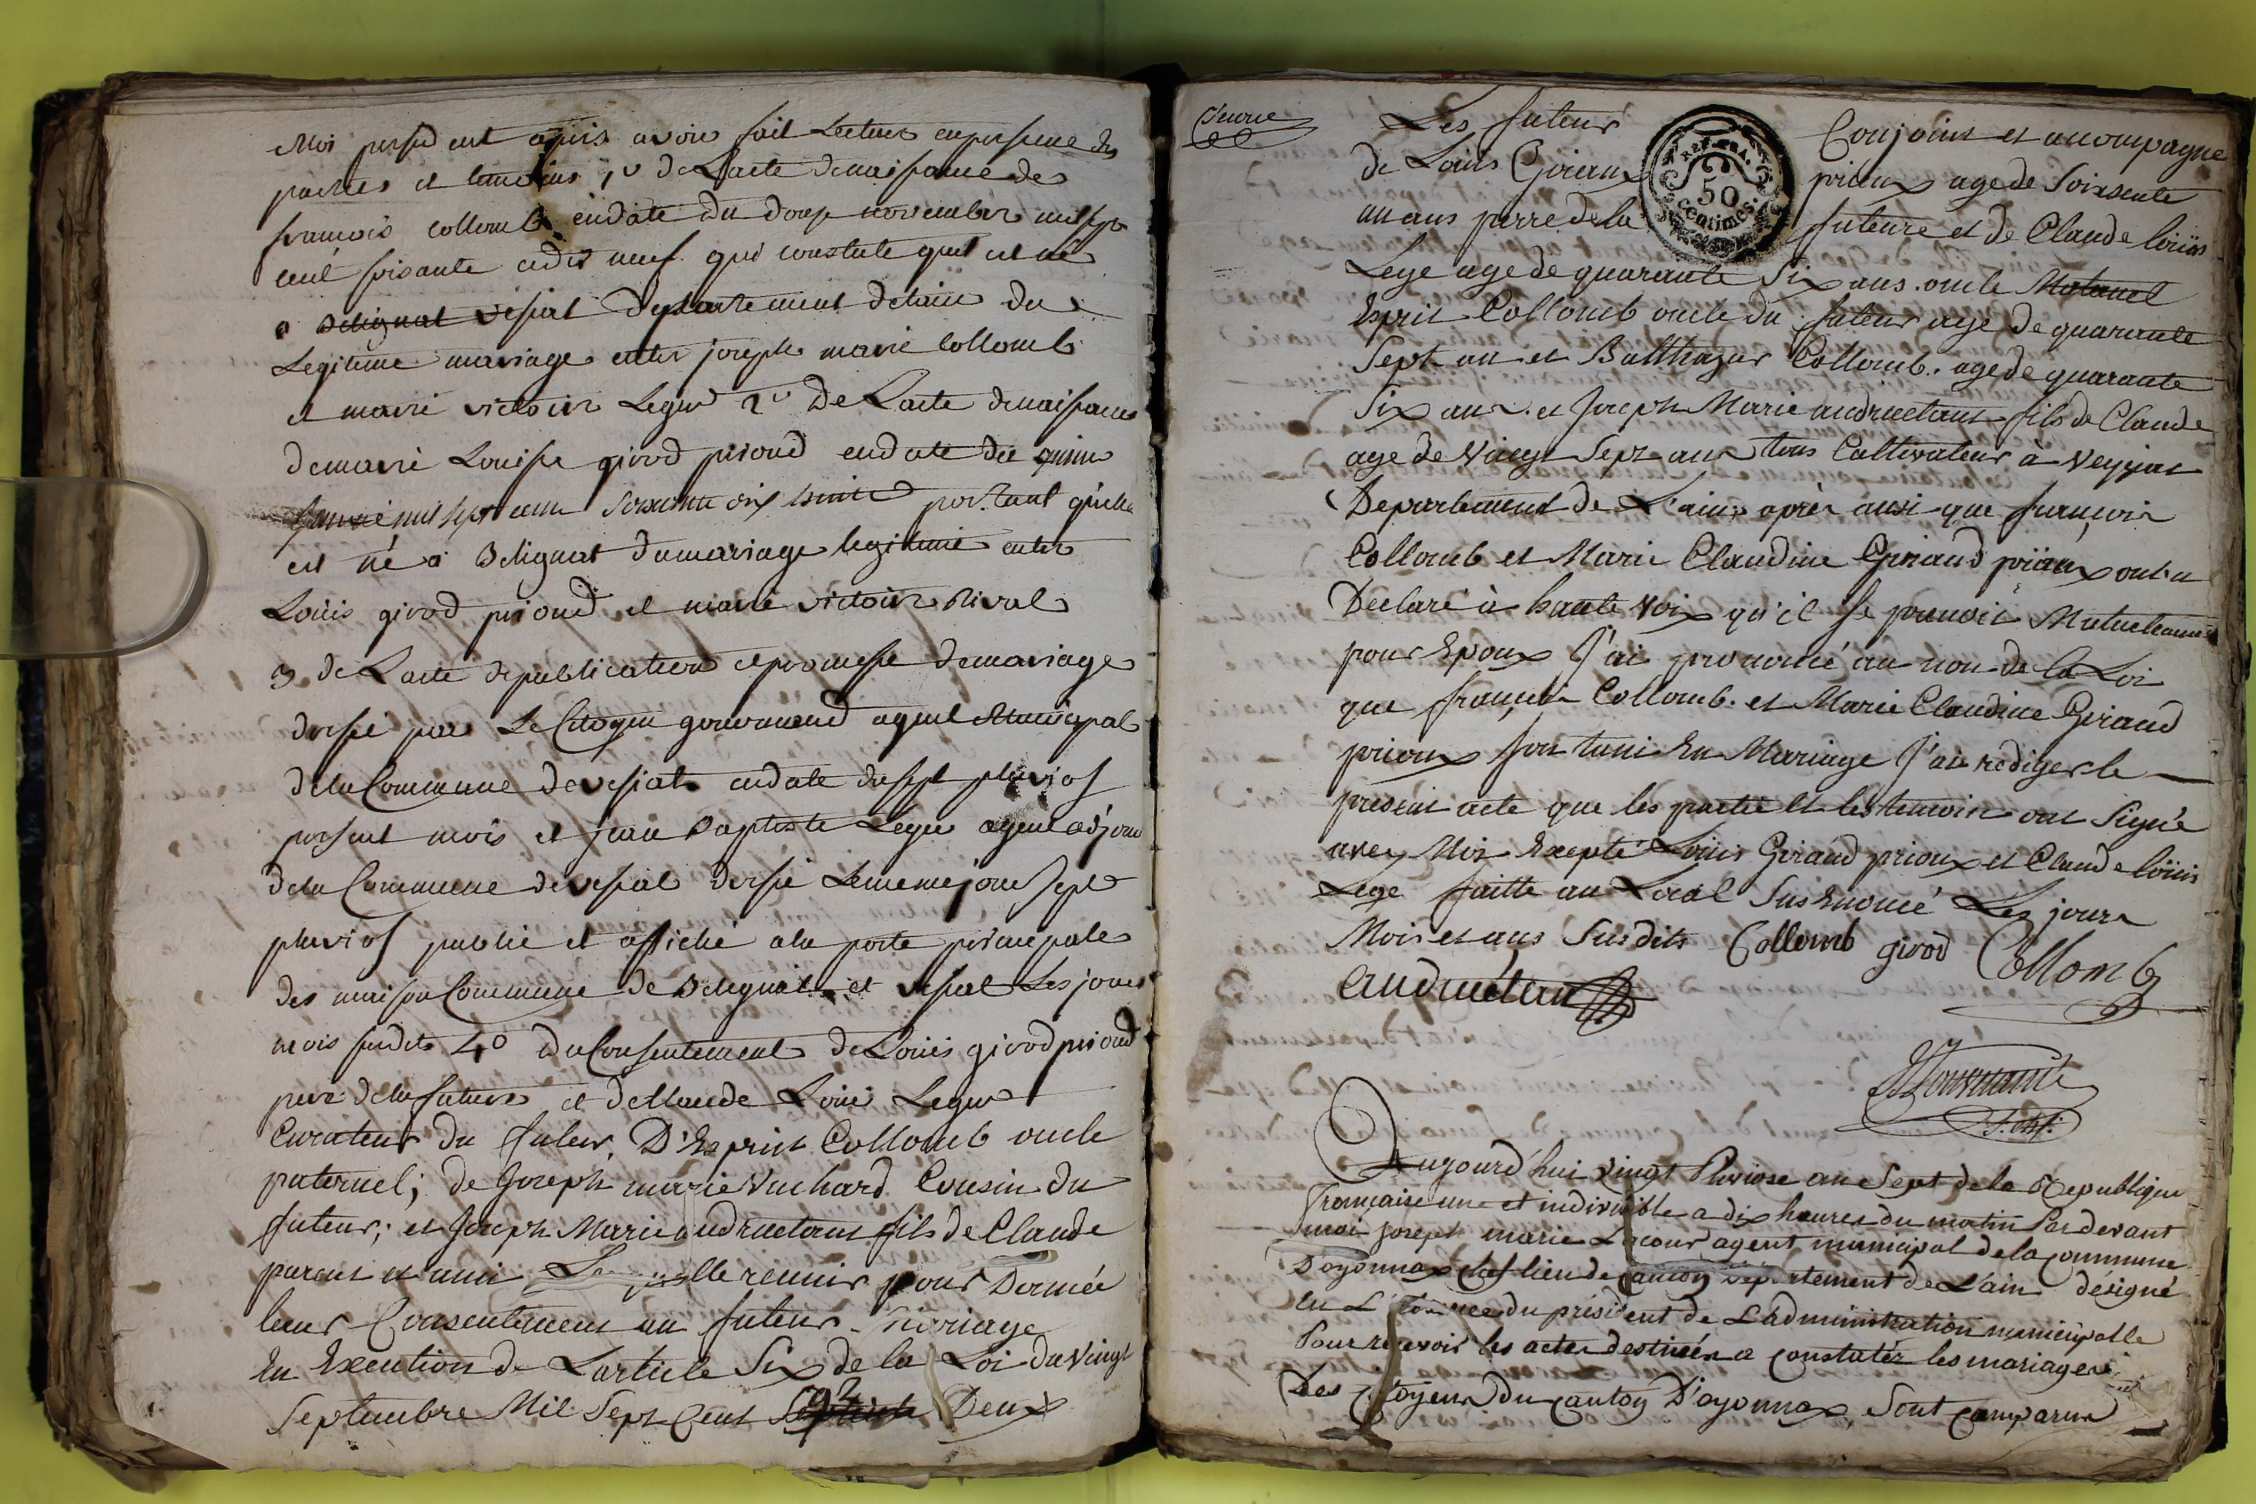 Moi president apris avoir fait Lecture enpersenne des
parties et temoins 1º de Lacte denaissance de
francois collomb endate du douse novembre mil sept
cent soisante edix neuf qui constate quil est né
a Belignat vesiat Departement delain du
Legitime mariage entre joseph marie Collomb
et marie victoire Leger 2º De Lacte denaissance
demarie Louise girod prioud endate du quinse
mil sept cent soixante dix huite portant quelle
est né a Belignat dumariage legitime entre
Loüis girod prioud et marie victoire Rival
3 de Lacte depublication et promesse demariage
dresse par Le Citoyen gouvernend agent Municipal
dela Commune devesiat endate dusept pluvios
present mois et jean Baptiste Leger agent adjoin
dela Commune devesiat dresse Lememe jour sept
pluvios publié et affiché ala porte principale
des maison Commune de Belignat et vesiat Les jours
mois susdits 4º du Consentement de Loüis girod prioud
pere dela future et deClaude Loüis Leger
Curateur du futur, D'Esprit Collomb oncle
paternel; de Joseph marie Vuchard Cousin du
futeur; et Joseph Marie andruetant fils de Claude
parent et ami reunir pour Donnée
leur Consentement au futeur mariage
En Execution de Lartticle Six de la Loi du Vingt
Septembre Mil Sept Cent 92 Deux
Les futeur Conjoint et acompagne
de Loüis Giraud prioux age de Soixsente
un ans perre de la future et de Claude loüis
Lege age de quarante Six ans oncle Matanel
Esprit Collomb oncle du futeur age de quarante
Sept an et Balthazar Collomb. age de quarante
Six ans. et Joseph Marie andruetant fils de Claude
age de Vingt Sept ans tous Cultivateur à Veyziat
Departement de L'ain, après ausi que françois
Collomb et Marie Claudine Giraud prioux ont
Declaré à haute Voix qu'il se prenoit Mutuelement
pour Epoux J'ai prononcé au non de la Loi
que françois Collomb. et Marie Claudine Giraud
prioux son tuni En Mariage J'ai rediger le
present acte que les partie Et les temoin ont Signé
avec Moi Excepté Loüis Giraud prioux et Claude loüis
Lege faitte au Local Sus Enoncé Les jours
Mois et ans Susdits Collomb girod Collomb
andruétan
Aujourd'hui vingt Pluviose an Sept de la Republique
française une et indivisible a dix heures du matin Par devant
moi joseph marie Lacour agent municipal de la commune
D'oyonnax chef lieu de canton Département de L'ain désigné
en L'absence du président de L'administration municipalle
Pour recevoir les actes destinés a constater les mariages
des citoyens du canton D'oyonnax, Sont comparus
REP. FRA.
50
centimes